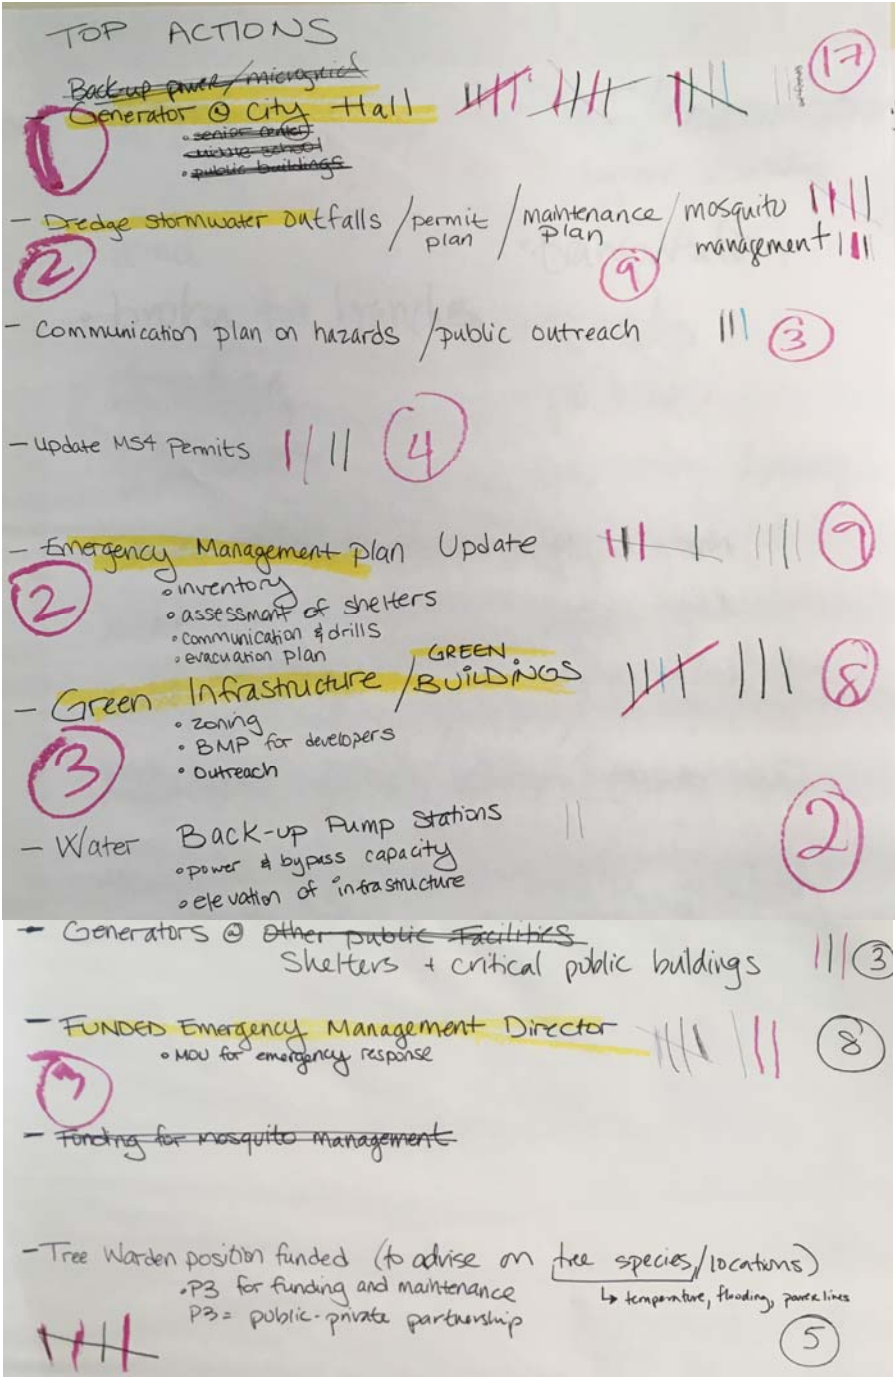 TOP ACTIONS
Back-up power/microgrid
- Generator @ City Hall 17
1
• senior center
middle school
• public buildings
- Dredge stormwater outfalls / permit plan / maintenance plan / mosquito management
2 9
- Communication plan on hazards / public outreach 3
- update MS4 Permits 4
- Emergency Management plan Update 9
2
• inventory
• assessment of shelters
• communication & drills
• evacuation plan
- Green Infrastructure / GREEN BUILDINGS 8
3
• zoning
• BMP for developers
• outreach
- Water Back-up Pump Stations 2
• power & bypass capacity
• elevation of infrastructure
- Generators @ Other public Facilities
Shelters + critical public buldings 3
- FUNDED Emergency Management Director 8
• MOU for emergency response
- Funding for Mosquito management
- Tree Warden position funded (to advise on tree species/locations)
• P3 for funding and maintenance
↳ temperature, flooding, power lines
P3 = public-private partnership
5